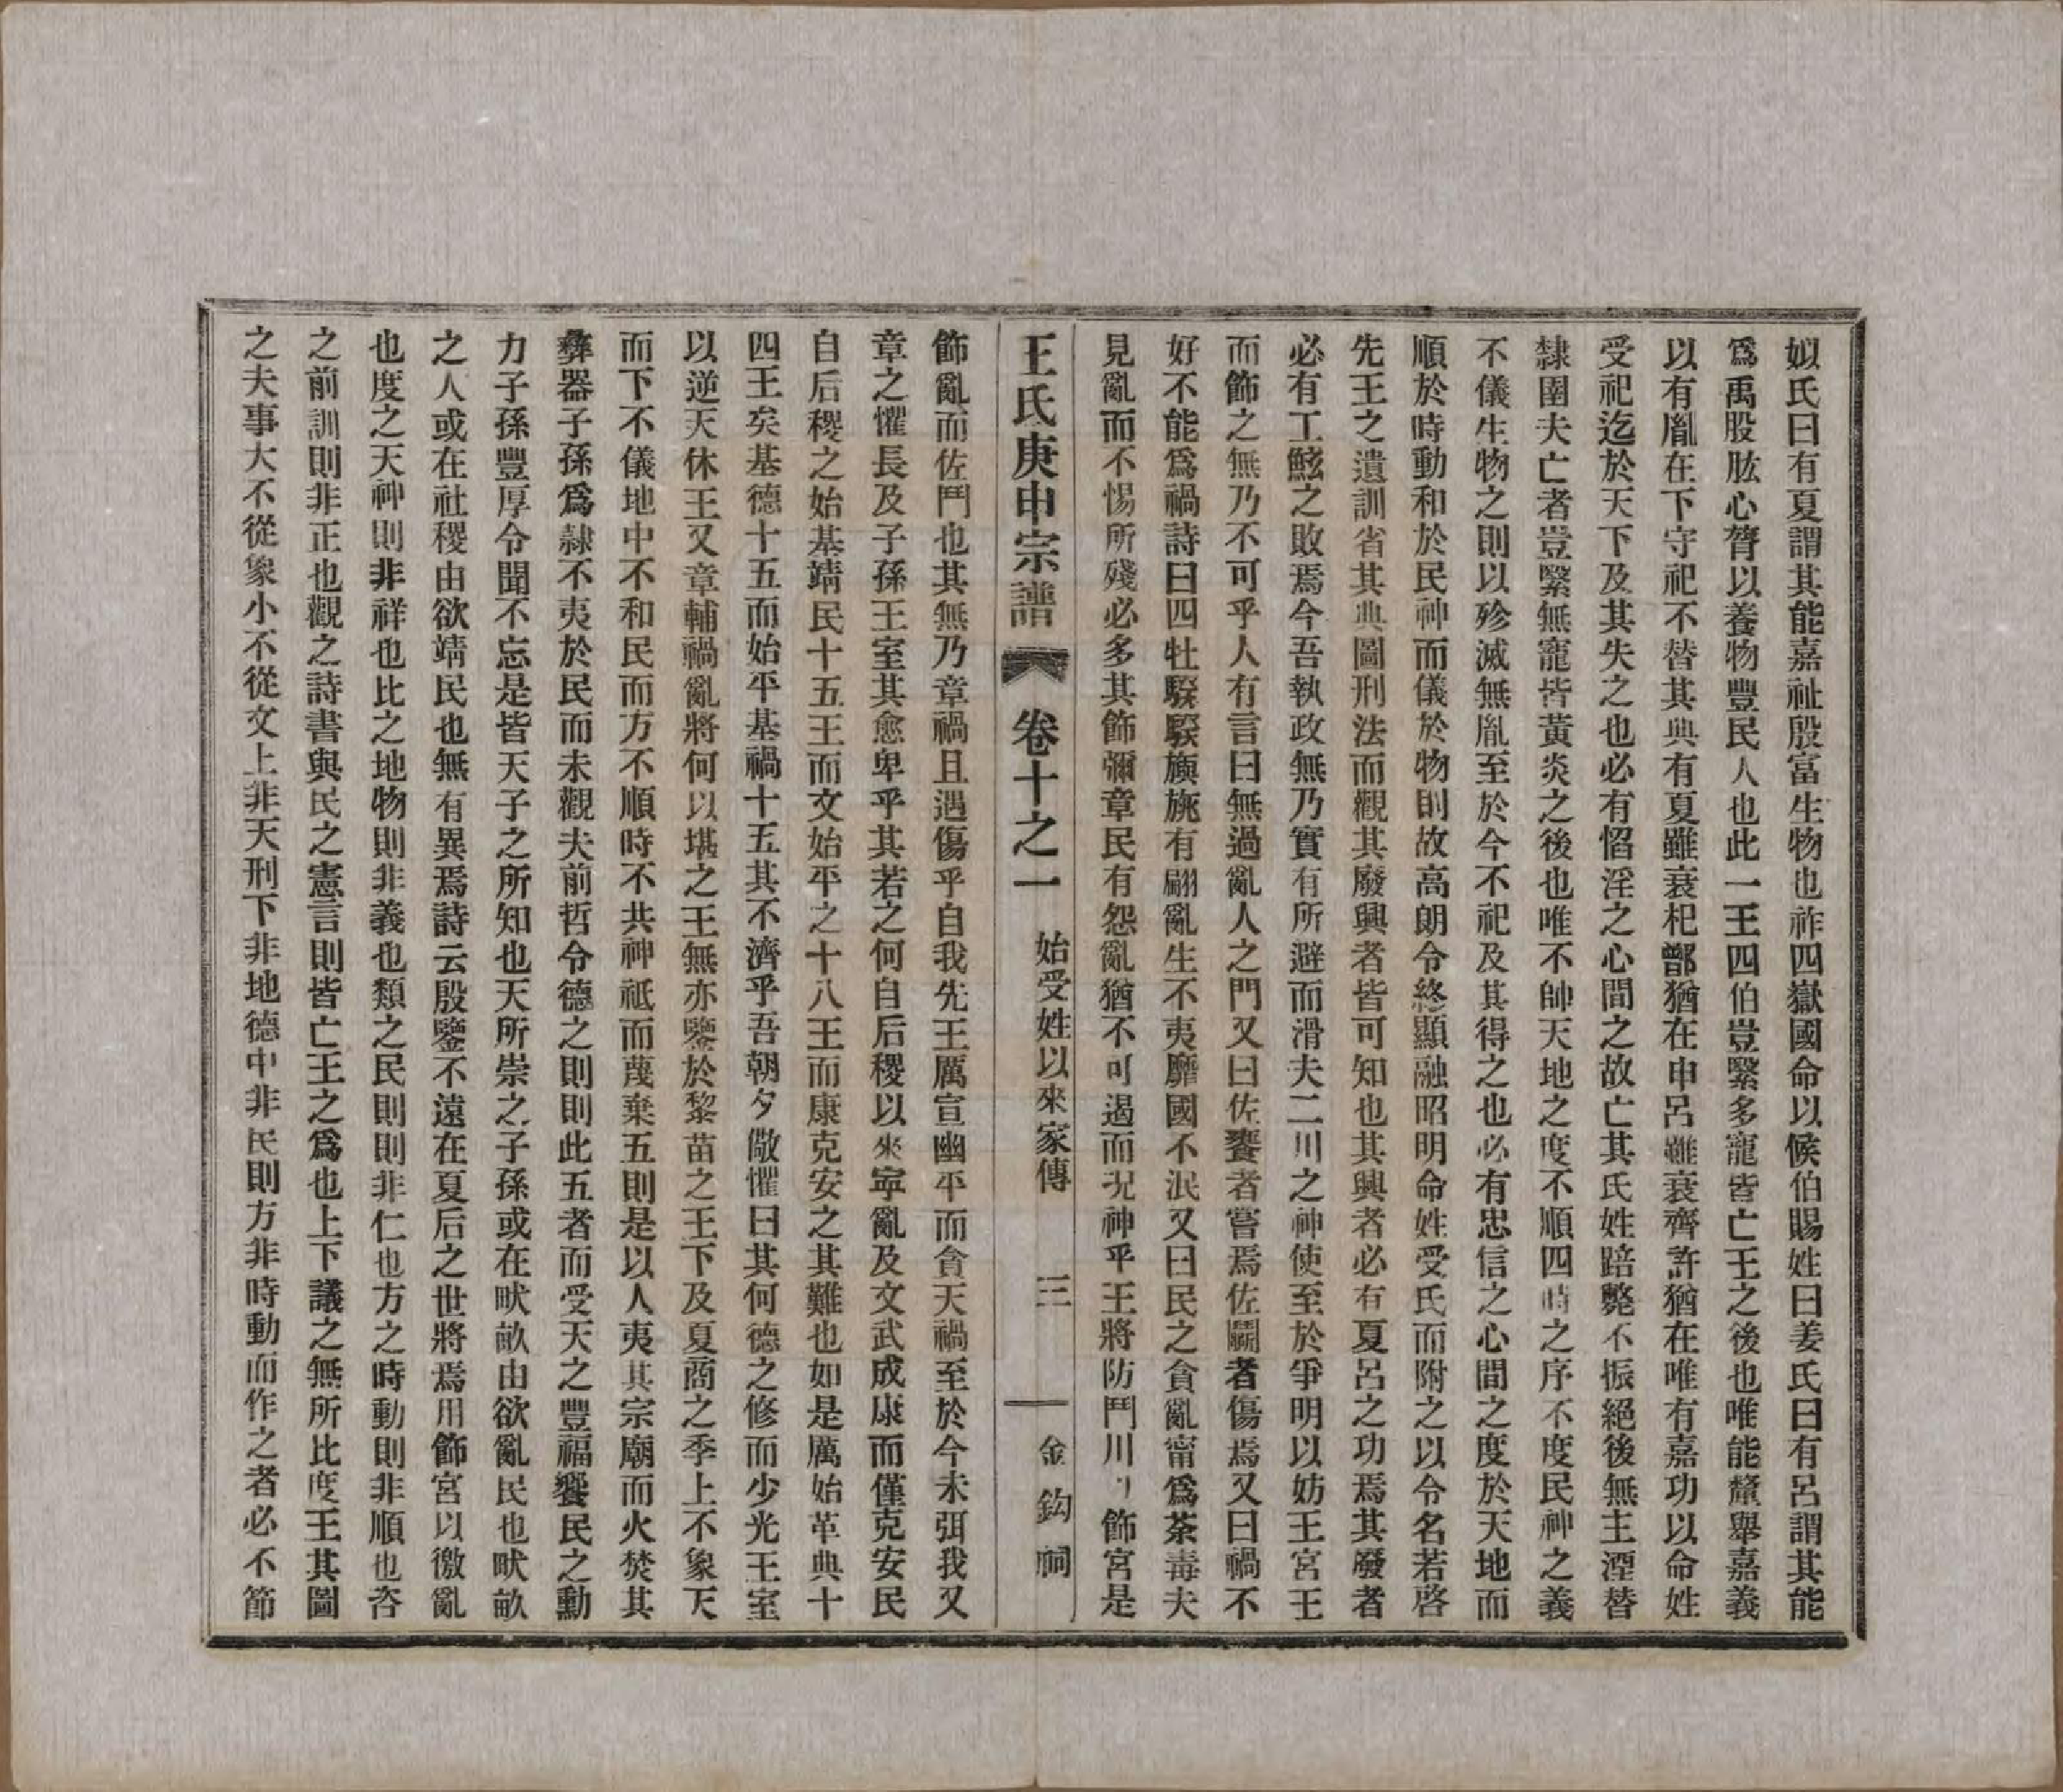 姒氏曰有夏謂其能嘉祉殷富生物也祚四嶽國命以侯伯賜姓曰姜氏曰有呂謂其能
爲禹股肱心膂以養物豐民人也此一王四伯豈繄多寵皆亡王之後也唯能釐舉嘉義
以有胤在下守祀不替其典有夏雖衰杞鄫猶在申呂雖衰齊許猶在唯有嘉功以命姓
受祀迄於天下及其失之也必有慆淫之心間之故亡其氏姓踣斃不振絕後無主湮替
隸圉夫亡者豈繄無寵皆黃炎之後也唯不帥天地之度不順四時之序不度民神之義
不儀生物之則以殄滅無胤至於今不祀及其得之也必有忠信之心間之度於天地而
順於時動和於民神而儀於物則故高朗令終顯融昭明命姓受氏而附之以令名若啓
先王之遺訓省其典圖刑法而觀其廢興者皆可知也其興者必有夏呂之功焉其廢者
必有工鮌之敗焉今吾執政無乃實有所避而滑夫二川之神使至於爭明以妨王宮王
而飾之無乃不可乎人有言曰無過亂人之門又曰佐饔者嘗焉佐鬬者傷焉又曰禍不
好不能爲禍詩曰四牡騤騤旟旐有翩亂生不夷靡國不泯又曰民之貪亂甯爲荼毒夫
見亂而不惕所殘必多其飾彌章民有怨亂猶不可遏而況神乎王將防鬥川以飾宮是
王氏庚申宗譜 卷十之一 始受姓以來家傳 三 金鈎祠
飾亂而佐鬥也其無乃章禍且遇傷乎自我先王厲宣幽平而貪天禍至於今未弭我又
章之懼長及子孫王室其愈卑乎其若之何自后稷以來寧亂及文武成康而僅克安民
自后稷之始基靖民十五王而文始平之十八王而康克安之其難也如是厲始革典十
四王矣基德十五而始平基禍十五其不濟乎吾朝夕儆懼曰其何德之修而少光王室
以逆天休王又章輔禍亂將何以堪之王無亦鑒於黎苗之王下及夏商之季上不象天
而下不儀地中不和民而方不順時不共神祇而蔑棄五則是以人夷其宗廟而火焚其
彝器子孫爲隸不夷於民而未觀夫前哲令德之則則此五者而受天之豐福饗民之勳
力子孫豐厚令聞不忘是皆天子之所知也天所崇之子孫或在畎畝由欲亂民也畎畝
之人或在社稷由欲靖民也無有異焉詩云殷鑒不遠在夏后之世將焉用飾宮以徼亂
也度之天神則非祥也比之地物則非義也類之民則則非仁也方之時動則非順也咨
之前訓則非正也觀之詩書與民之憲言則皆亡王之爲也上下議之無所比度王其圖
之夫事大不從象小不從文上非天刑下非地德中非民則方非時動而作之者必不節